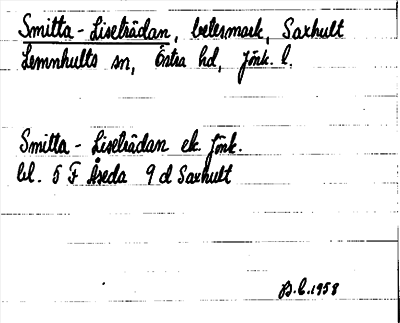 Smitta - Liseträdan, betesmark, Saxhult
Lemnhults sn, Östra hd, Jönk. l.
Smitta - Liseträdan ek. Jönk.
bl. 5 F Åseda 9 d Saxhult
B.L. 1958